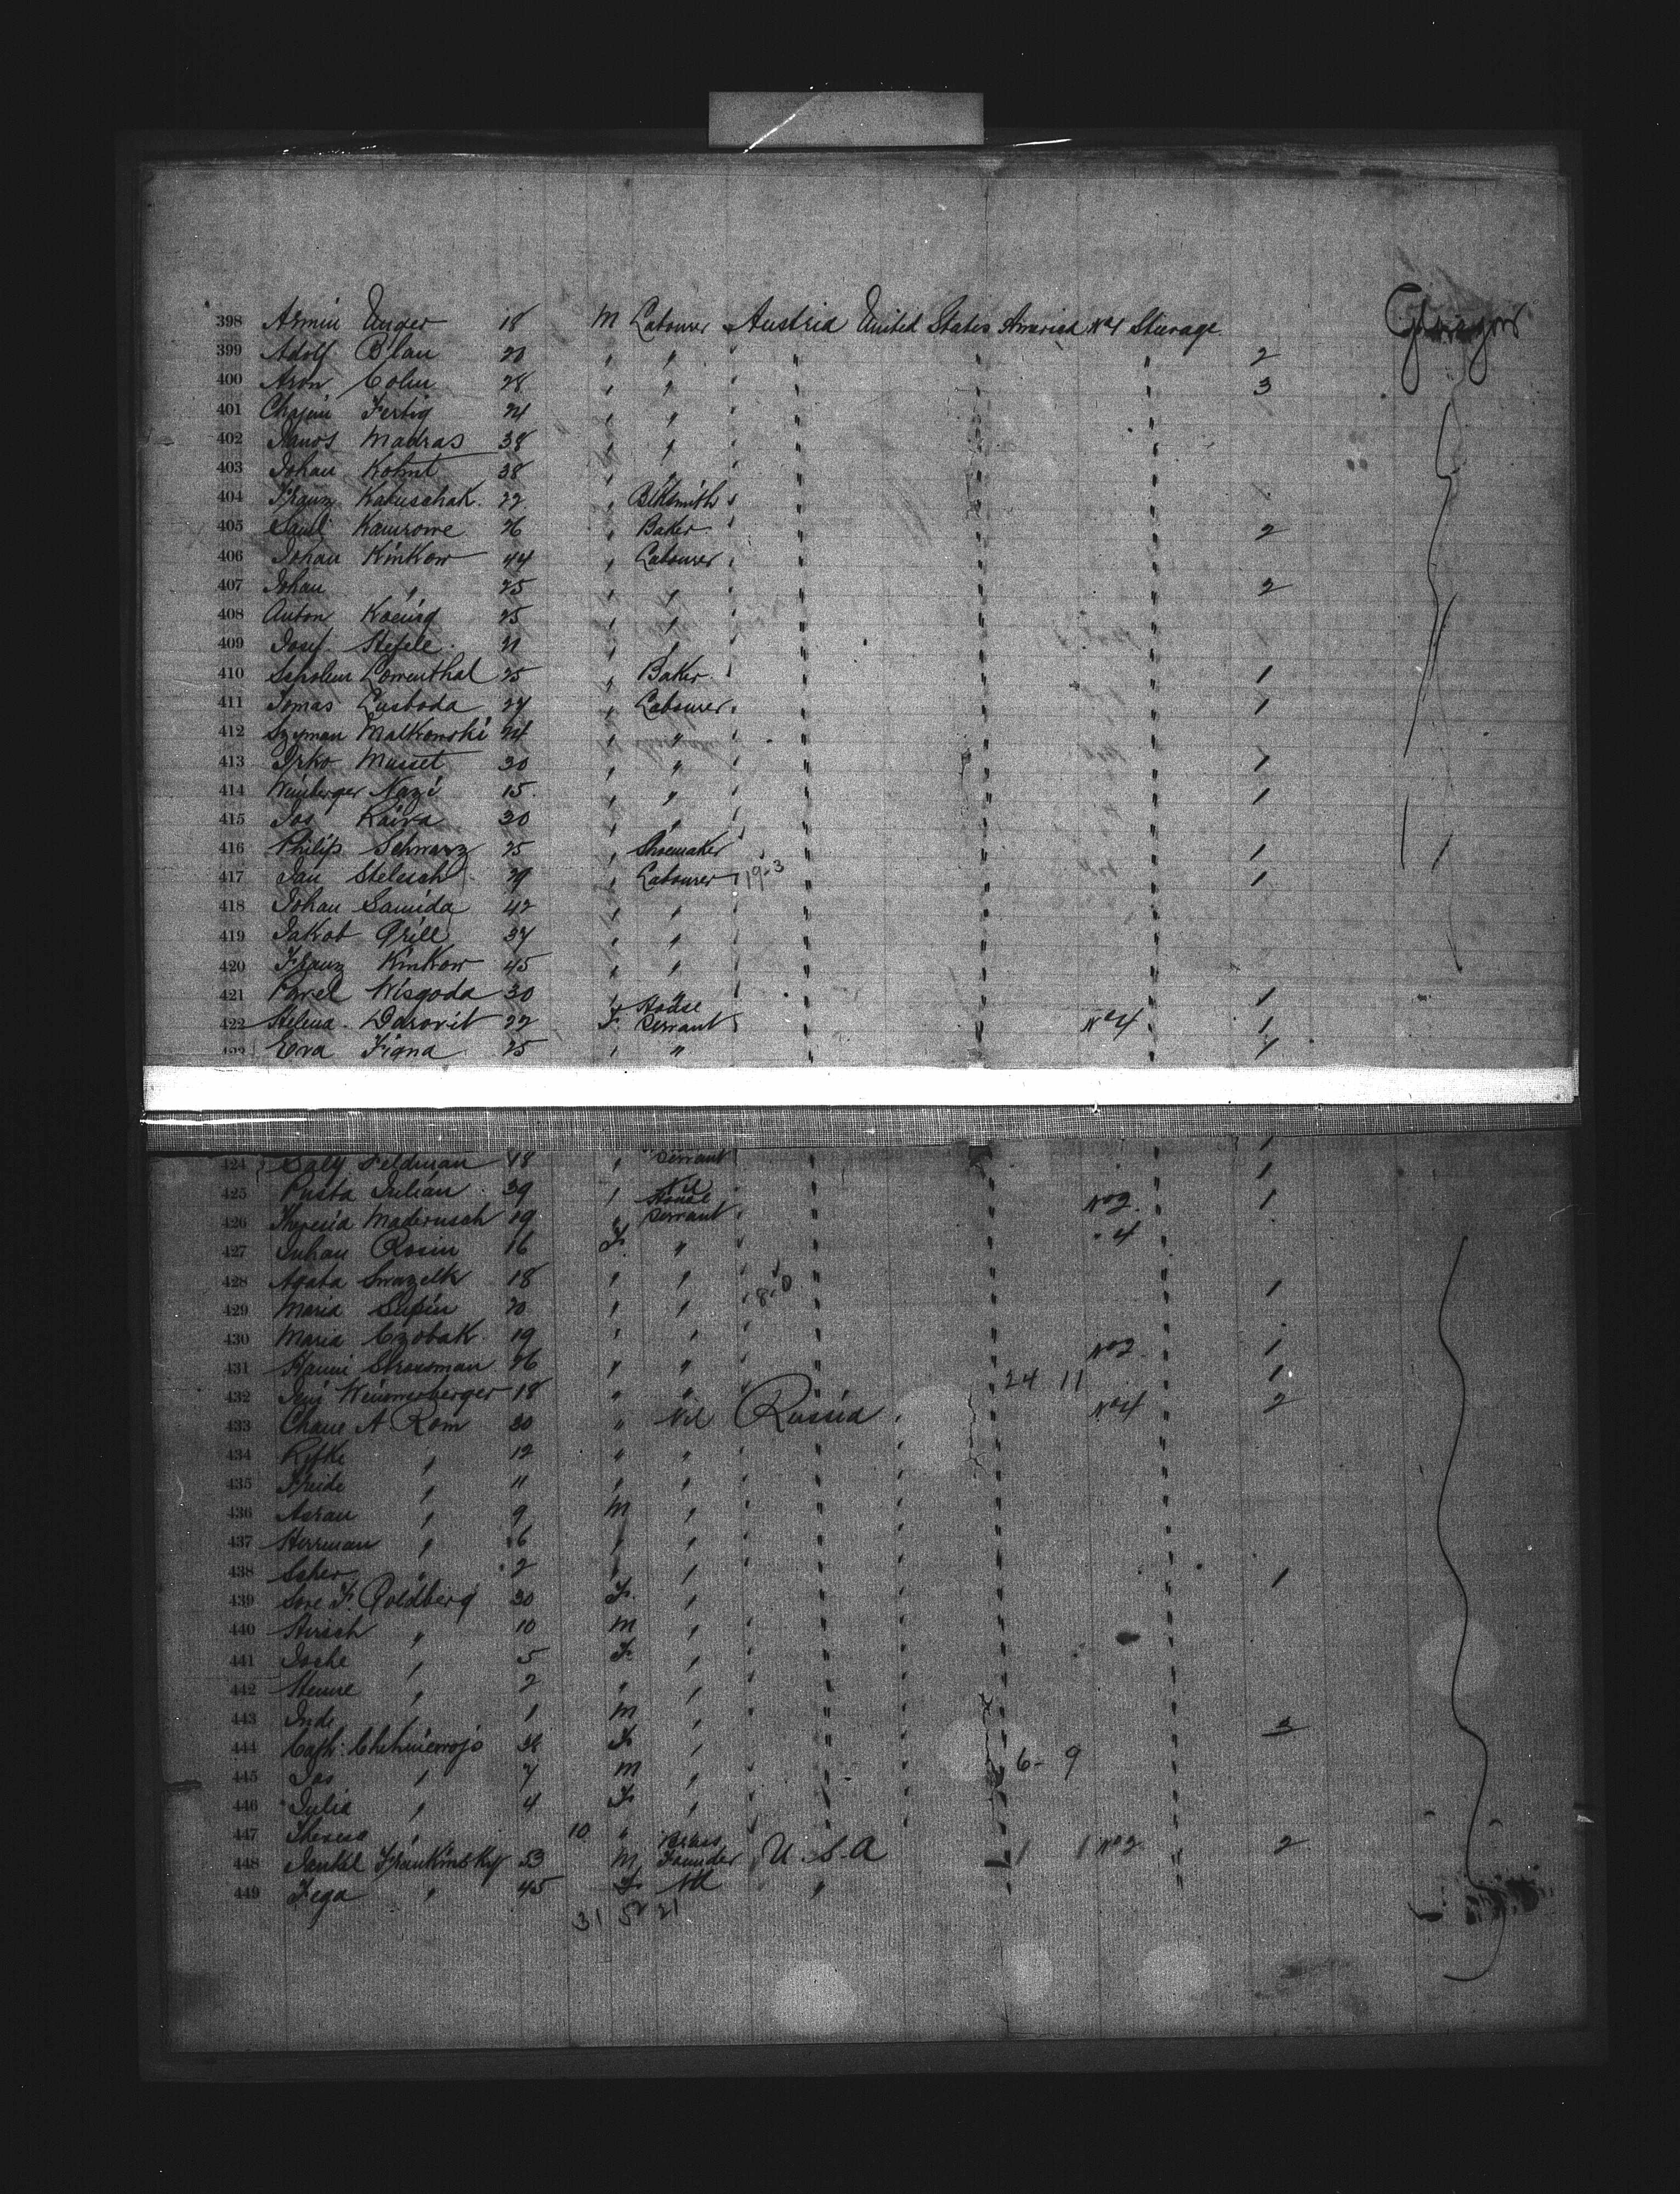 398 Armin Unger 18 M Labourer Austria United States America No 4 Steerage Glasgow
399 Adolf Blau 20 " " " " " " 2
400 Aron Cohn 28 " " " " " " 3
401 Chajim Fertig 24 " " " " " "
402 Janos Madras 38 " " " " " "
403 Johan Kohnt 38 " " " " " "
404 Franz Kakuschak 22 " Blksmith " " " "
405 Kamrowe 26 " Baker " " " 2
406 Johan Kinkow 44 " Labourer " " " "
407 Johan " 25 " " " " " 2
408 Anton Koenig 25 " " " " "
409 Josef Stefele 21 " " " " "
410 Scholem Lowenthal 25 " Baker " " " 1
411 Tomas Lusboda 27 " Labourer " " " " 1
412 Szyman Malkowski 24 " " " " " "
413 Musset 30 " " " " " " 1
414 Weinberger Nazi 15 " " " " " " 1
415 Jos Kaiva 30 " " " " " "
416 Philip Schwarz 25 " Shoemaker " " " 1
417 Jan Stelesch 29 " Labourer " 19-3 " " " 1
418 Johan Samida 42 " " " " "
419 Jakob Grill 37 " " " " "
420 Franz Kinkow 45 " " " " "
421 Pawel Wisgoda 30 " " " " " 1
422 Helena Darovit 22 F House Servant " " " No 4 " 1
423 Eva Figna 25 " " " " " 1
424 Saly Feldman 18 " Servant " " 1
425 Pusta Julian 39 " Nil " " No 2 " 1
426 Theresia Maderusch 19 " House Servant " " " " 4 " 1
427 Juhan Rosin 16 F " " " " "
428 Agata Swazelk 18 " " " " " " 1
429 Maria Supin 20 " " " 8-0 " " "
430 Maria Czobak 19 " " " " " No 2 " 1
431 Hanni Strossman 26 " " " " " " 1
432 Weinnerberger 18 " " " " 24 11 " 2
433 Chaie A Rom 30 " Nil Russia " " No 4 "
434 Rifke " 12 " " " " " " "
435 Freide " 11 " " " " " " "
436 " 9 M " " " " " "
437 Herrman " 6 " " " " " " "
438 Scher " 2 " " " " " " " 1
439 Sore F. Goldberg 30 F " " " " "
440 Hirsch " 10 M " " " " " "
441 Joche " 5 F " " " " " "
442 " 2 " " " " " " "
443 Inde " 1 M " " " " " " 3
444 Cath. 38 F " " " " " "
445 Jos " 7 M " " " " " 6- 9 "
446 Julia " 4 F " " " " " "
447 Therese " 10 " " " " " "
448 Jankel Frankinsky 53 M Brass Founder U.S.A " 1 1 No 2 " 2
449 Fega " 45 F Nil " " "
31 51 21